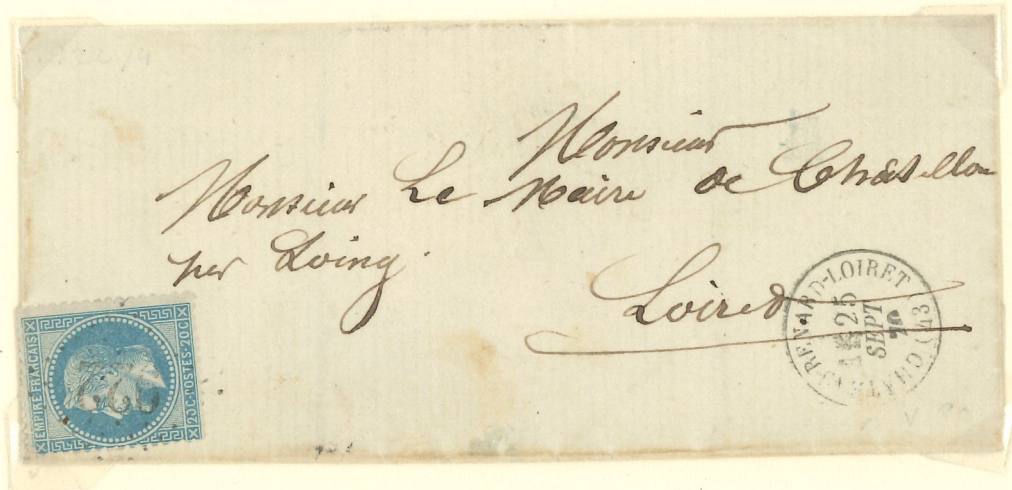 Monsieur
Monsieur Le Maire de Châtillon
sur Loing.
Loiret
CHATEAU-RENARD-LOIRET (43)
25
SEPT
70
EMPIRE FRANÇAIS
20C-POSTES-20C